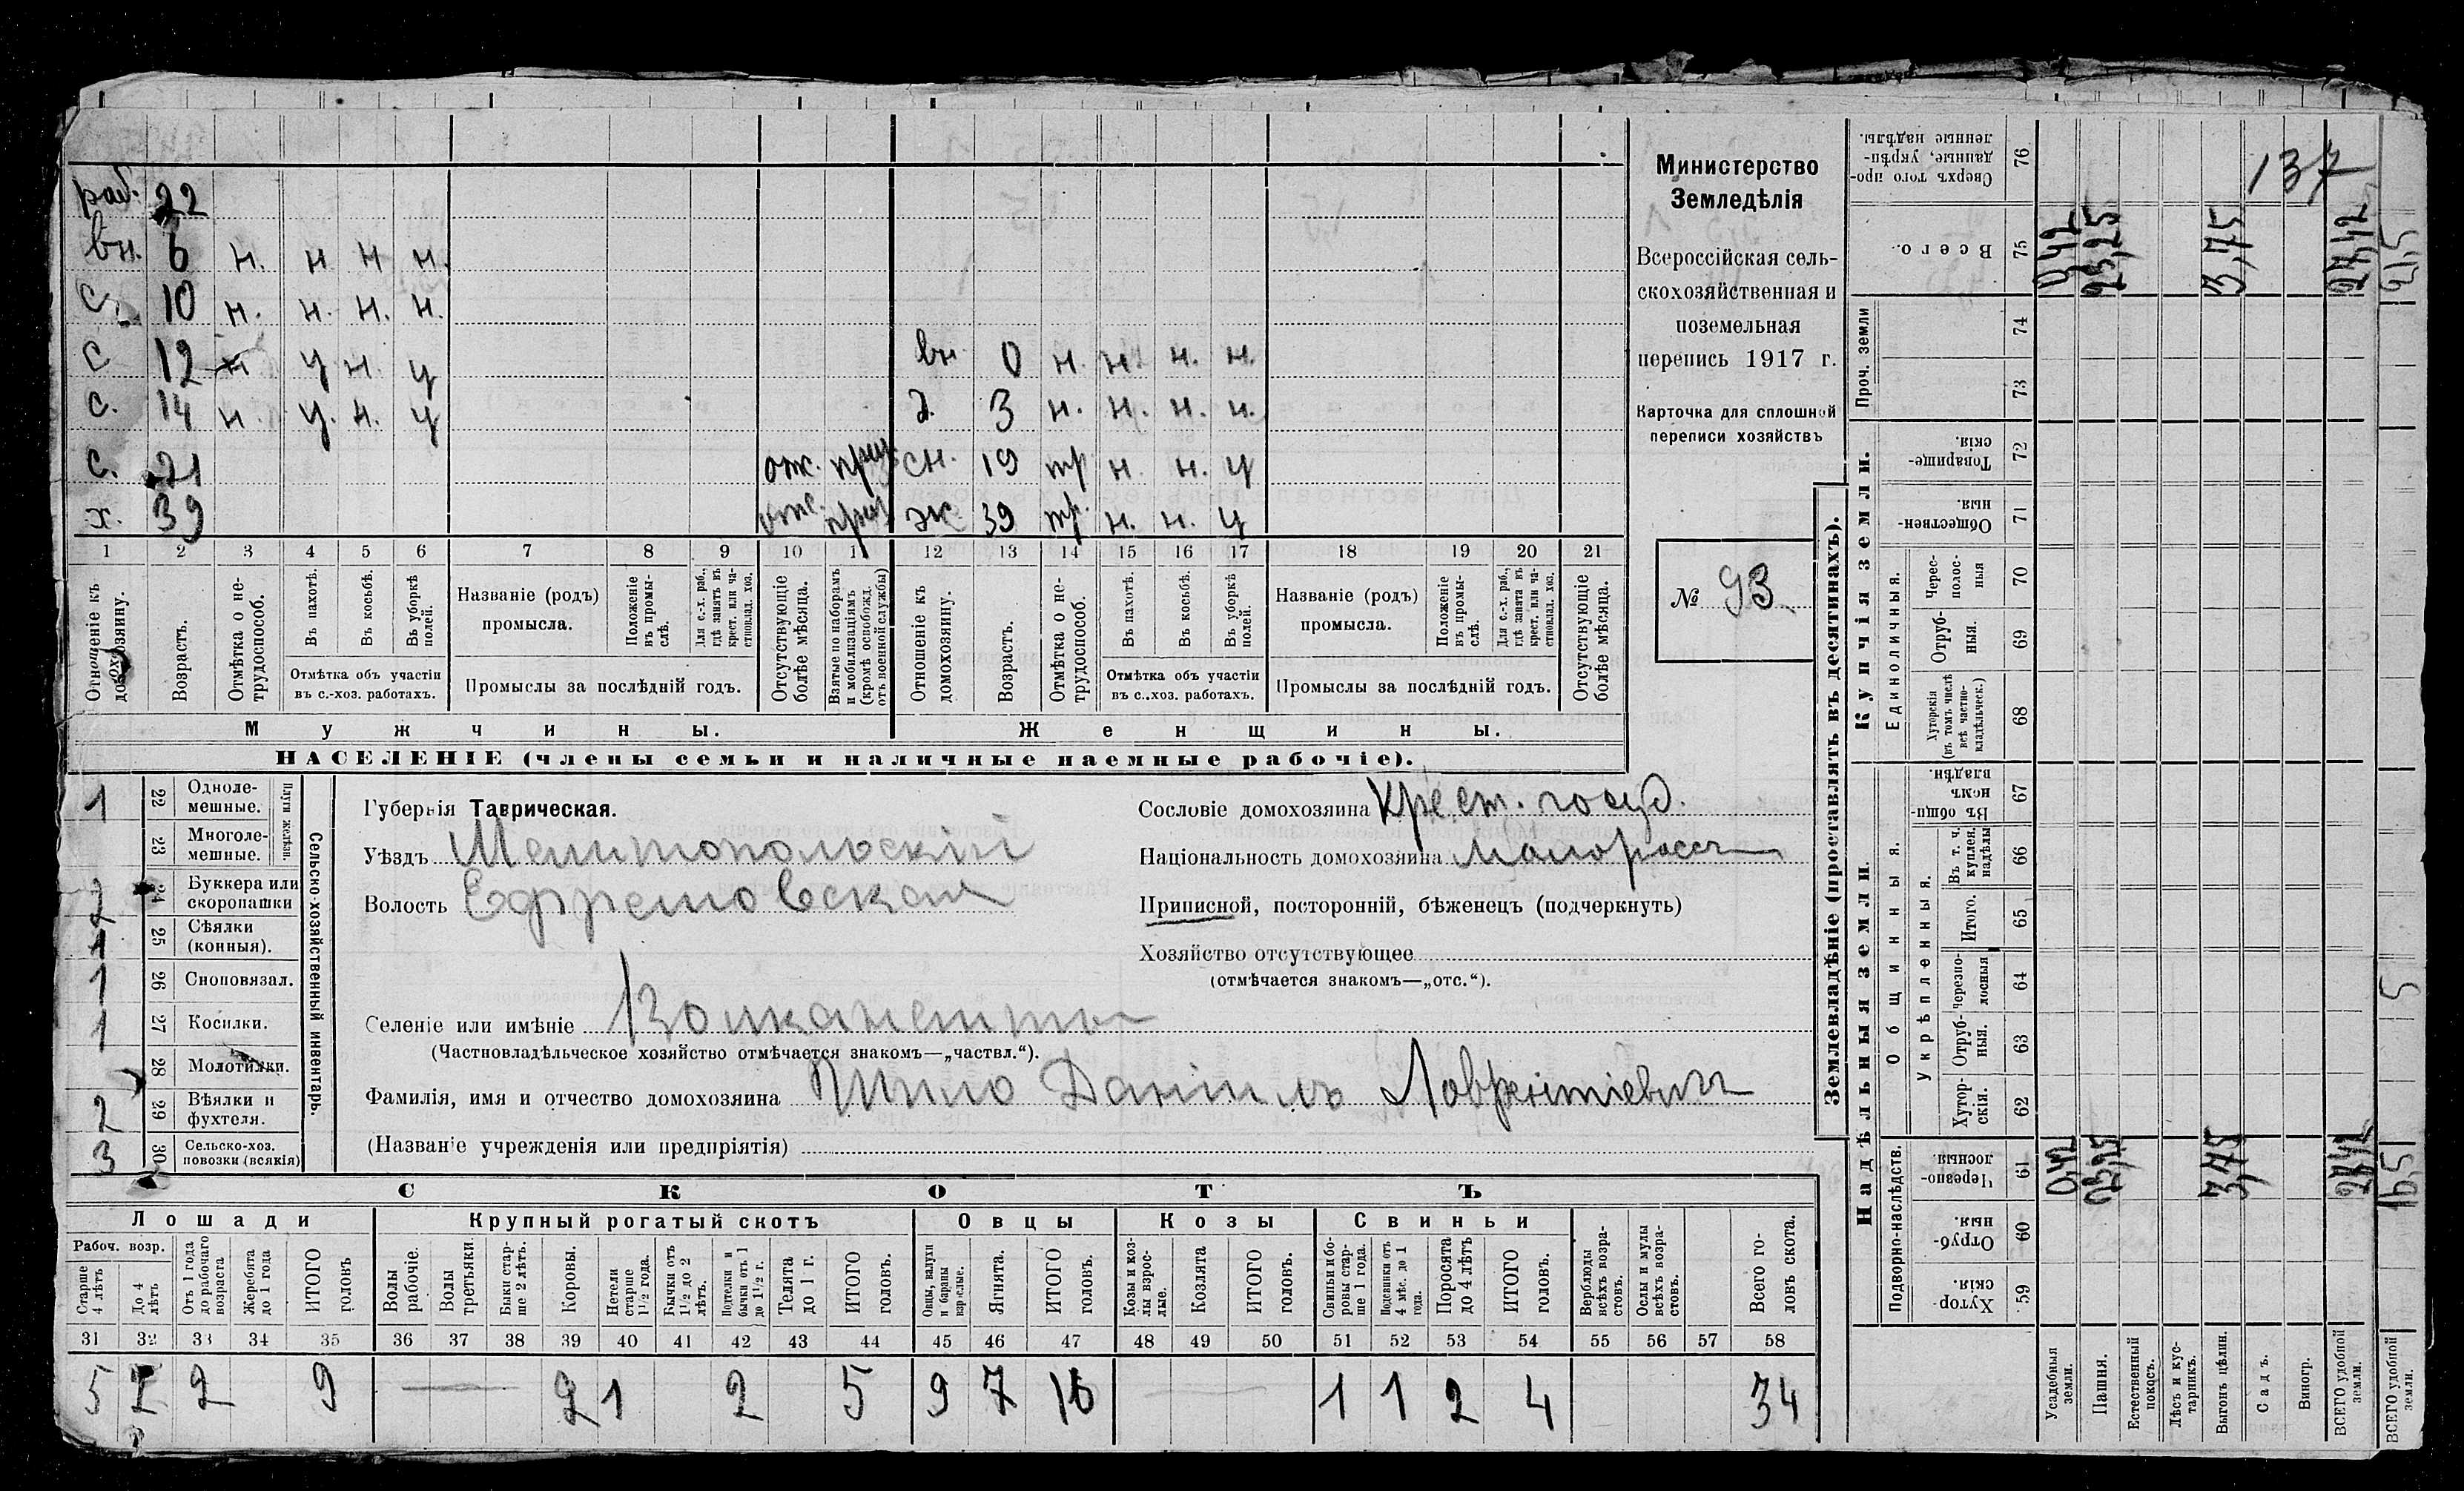 137
Министерство
Земледѣлія
Всероссійская сель-
скохозяйственная и
поземельная
перепись 1917 г.
Карточка для сплошной
переписи хозяйствъ
№ 93
раб. 22
вн. 6 н. н н н.
с. 10 н. н. н. н.
с 12 н у н. у вн 0 н. н. н. н.
с. 14 н. у. н. у д. 3 н. н. н. н.
с. 21 отс. приз. сн. 19 тр н н. у
х. 39 отс. приз. ж. 39 тр. н. н. у
1 2 3 4 5 6 7 8 9 10 11 12 13 14 15 16 17 18 19 20 21
Отношеніе къ домохозяину.
Возрастъ.
Отмѣтка о не-трудоспособ.
Въ пахотѣ.
Въ косьбѣ.
Въ уборкѣ полей.
Отмѣтка объ участіи
въ с.-хоз. работахъ.
Названіе (родъ)
промысла.
Положеніе въ промы-слѣ.
Для с.-х. раб., гдѣ занятъ въ крест. или ча-стновлад. хоз.
Промыслы за послѣдній годъ.
Отсутствующіе болѣе мѣсяца.
Взятые по наборамъ и мобилизаціямъ (кромѣ освобожд. отъ военной службы)
Отношеніе къ домохозяину.
Возрастъ.
Отмѣтка о не-трудоспособ.
Въ пахотѣ.
Въ косьбѣ.
Въ уборкѣ полей.
Отмѣтка объ участіи
въ с.-хоз. работахъ.
Названіе (родъ)
промысла.
Положеніе въ промы-слѣ.
Для с.-х. раб., гдѣ занята въ крест. или ча-стновлад. хоз.
Промыслы за послѣдній годъ.
Отсутствующіе болѣе мѣсяца.
Мужчины. Женщины.
НАСЕЛЕНІЕ (члены семьи и наличные наемные рабочіе).
Сельско-хозяйственный инвентарь.
Плуги желѣзн.
1 22 Одноле-мешные.
23 Многоле-мешные.
2 24 Буккера или скоропашки
1 25 Сѣялки (конныя).
1 26 Сноповязал.
1 27 Косилки.
28 Молотилки.
2 29 Вѣялки и фухтеля.
3 30 Сельско-хоз. повозки (всякія)
Губернія Таврическая.
Уѣздъ Мелитопольскій
Волость Ефремовская
Сословіе домохозяина Крест. госуд.
Національность домохозяина Малоросс
Приписной, посторонній, бѣженецъ (подчеркнуть)
Хозяйство отсутствующее
(отмѣчается знакомъ—„отс.“).
Селеніе или имѣніе Волканешты
(Частновладѣльческое хозяйство отмѣчается знакомъ—„частвл.“).
Фамилія, имя и отчество домохозяина Даніилъ Лаврентіевич
(Названіе учрежденія или предпріятія)
СКОТЪ
Лошади Крупный рогатый скотъ Овцы Козы Свиньи
Рабоч. возр.
Старше 4 лѣтъ
До 4 лѣтъ
Отъ 1 года до рабочаго возраста
Жеребята до 1 года
ИТОГО головъ
Волы рабочіе.
Волы третьяки.
Быки стар-ше 2 лѣтъ.
Коровы.
Нетели старше 1½ года.
Бычки отъ 1½ до 2 лѣтъ.
Подтелки и бычки отъ 1 до 1½ г.
Телята до 1 г.
ИТОГО головъ.
Овцы, валухи и бараны взрослые.
Ягнята.
ИТОГО головъ.
Козы и коз-лы взрос-лые.
Козлята
ИТОГО головъ.
Свиньи и бо-ровы стар-ше 1 года.
Подсвинки отъ 4 мѣс. до 1 года.
Поросята до 4 лѣтъ
ИТОГО головъ.
Верблюды всѣхъ возра-стовъ.
Ослы и мулы всѣхъ возра-стовъ.
Всего го-ловъ скота.
31 32 33 34 35 36 37 38 39 40 41 42 43 44 45 46 47 48 49 50 51 52 53 54 55 56 57 58
5 2 2 9 — 2 1 2 5 9 7 16 — 1 1 2 4 34
Землевладѣніе (проставлять въ десятинахъ).
Купчія земли.
Надѣльныя земли.
76 Сверхъ того про-данные, укрѣп-ленные надѣлы.
75 Всего.
Проч. земли
74
73
72 Товарище-скія.
71 Обществен-ныя.
Единоличныя.
70 Черес-полос-ныя
69 Отруб-ныя.
68 Хуторскія (въ томъ числѣ всѣ частно-владѣльческ.)
Общинныя.
67 Въ общи-номъ владѣн.
Укрѣпленныя.
66 Въ т. ч. куплен. надѣлы
65 Итого.
64 Черезпо-лосныя
63 Отруб-ныя.
62 Хутор-скія.
Подворно-наслѣдств.
61 Черезпо-лосныя.
60 Отруб-ныя.
59 Хутор-скія.
Усадебныя земли.
Пашня.
Естественный покосъ.
Лѣсъ и кус-тарникъ.
Выгонъ цѣлин.
Садъ.
Виногр.
ВСЕГО удобной земли.
ВСЕГО удобной земли.
0,42 23,25 3,75 27,42 21,5
5
0,42 23,25 3,75 27,42 16,5